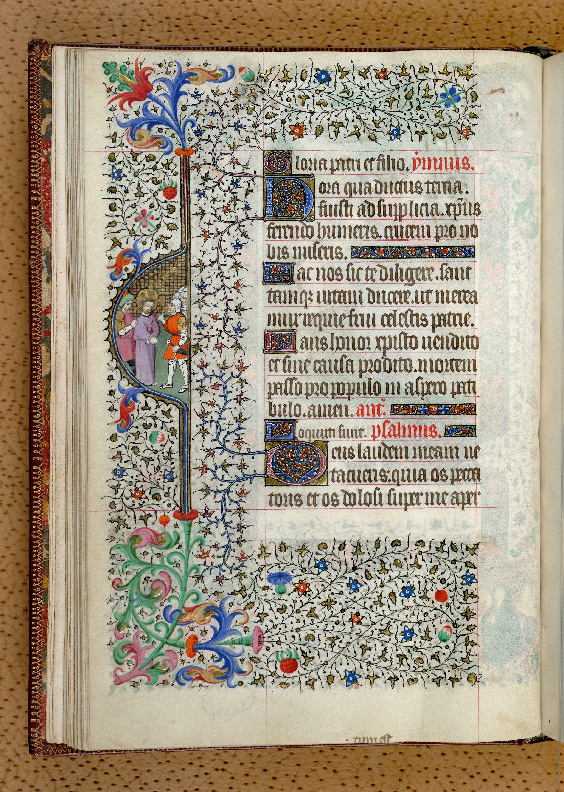 Gloria patri et filio. ympnus.
Hora qua ductus tertia.
fuisti ad supplicia. xpistus
ferendo humeris. crucem pro no
bis miseris.
Fac nos sic te diligere. sanc
tamque vitam ducere. ut merea
mur requie frui celestis patrie.
Laus honor xpisto vendito
et sine causa prodito. mortem
passo pro populo in aspero pati
bulo. amen. ant.
Locuti sunt. psalmus.
Deus laudem meam ne
tacueris: quia os pecca
toris et os dolosi super me aper
tum est